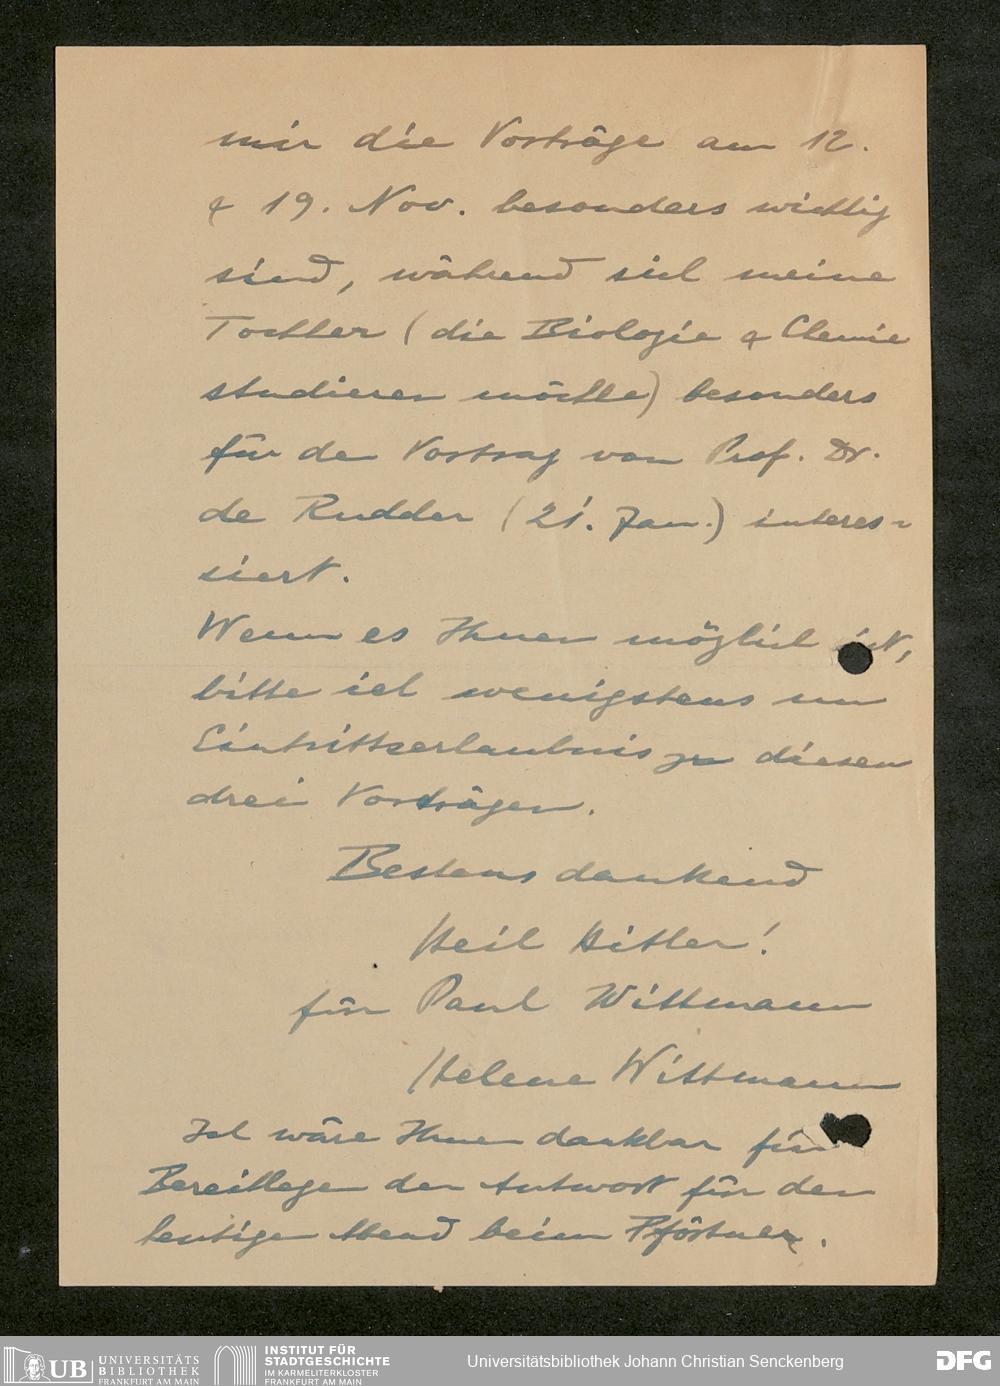 mir die Vorträge am 12.
& 19. Nov. besonders wichtig
sind, während sich meine
Tochter (die Biologie & Chemie
studieren möchte) besonders
für den Vortrag von Prof. Dr.
de Rudder (21. Jan.) interes-
siert.
Wenn es Ihnen möglich ist,
bitte ich wenigstens um
Eintrittserlaubnis zu diesen
drei Vorträgen.
Bestens dankend
Heil Hitler!
für Paul Wittmann
Helene Wittmann
Ich wäre Ihnen dankbar für
Bereitlegen der Antwort für den
heutigen Abend beim Pförtner.
UB UNIVERSITÄTS
BIBLIOTHEK
FRANKFURT AM MAIN
INSTITUT FÜR
STADTGESCHICHTE
IM KARMELITERKLOSTER
FRANKFURT AM MAIN
Universitätsbibliothek Johann Christian Senckenberg
DFG